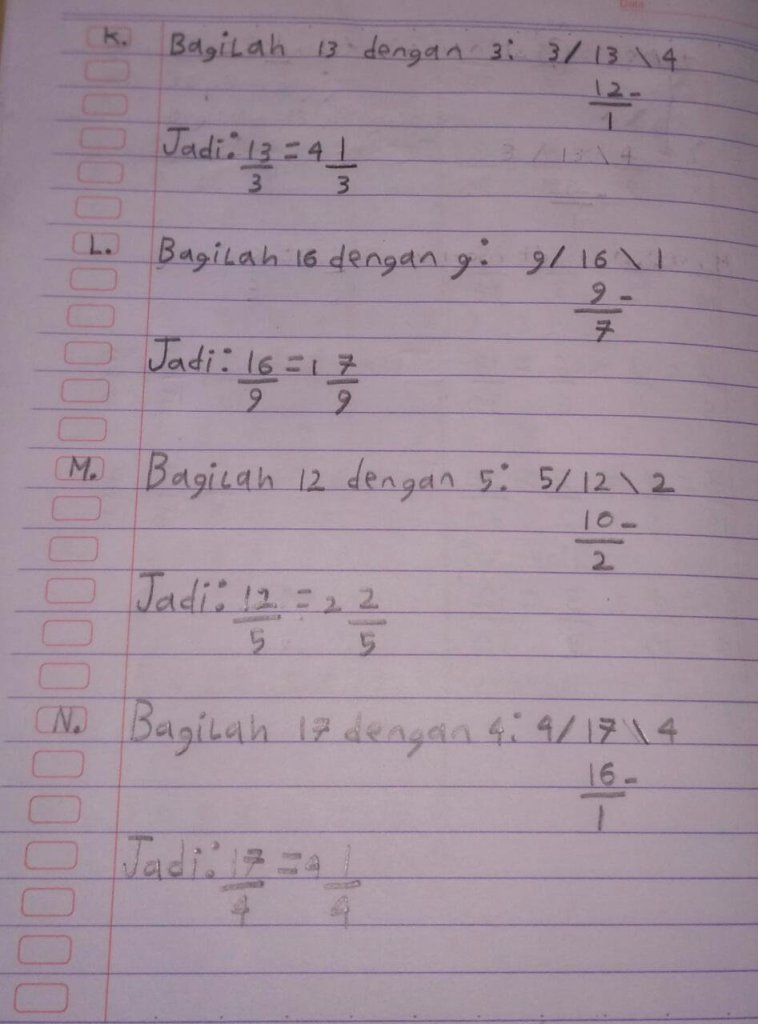 K. Bagilah 13 dengan 3: 3/ 13 \ 4
12 -
1
Jadi: 13/3 = 4 1/3
3 / 13 \ 4
L. Bagilah 16 dengan 9: 9/ 16 \ 1
9 -
7
Jadi: 16/9 = 1 7/9
M. Bagilah 12 dengan 5: 5/ 12 \ 2
10 -
2
Jadi: 12/5 = 2 2/5
N. Bagilah 17 dengan 4: 4/ 17 \ 4
16 -
1
Jadi: 17/4 = 4 1/4